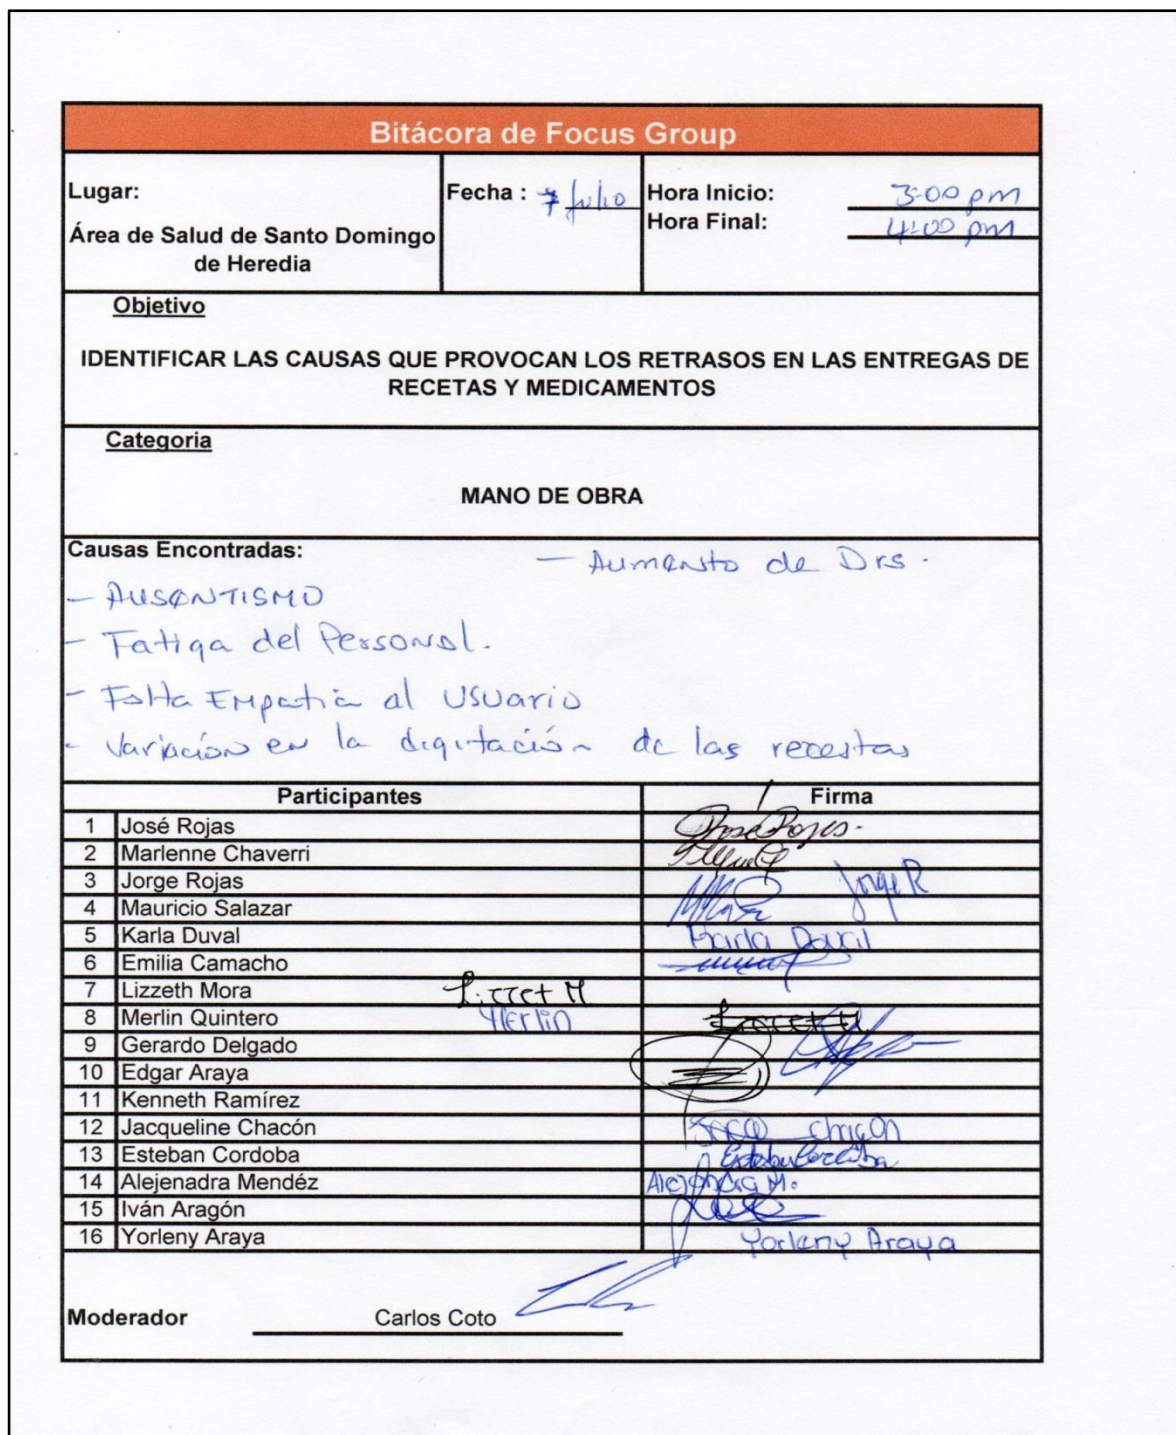 Bitácora de Focus Group
Lugar:
Área de Salud de Santo Domingo
de Heredia
Fecha : 7 Julio
Hora Inicio: 3:00 pm
Hora Final: 4:00 pm
Objetivo
IDENTIFICAR LAS CAUSAS QUE PROVOCAN LOS RETRASOS EN LAS ENTREGAS DE
RECETAS Y MEDICAMENTOS
Categoria
MANO DE OBRA
Causas Encontradas:
- Aumento de Drs.
- AUSENTISMO
- Fatiga del Personal.
- Falta Empatia al Usuario
- Variación en la digitación de las recestas
Participantes Firma
1 José Rojas José Rojas.
2 Marlenne Chaverri
3 Jorge Rojas Jorge R
4 Mauricio Salazar
5 Karla Duval Karla Duval
6 Emilia Camacho
7 Lizzeth Mora Lizzet M
8 Merlin Quintero Merlin
9 Gerardo Delgado
10 Edgar Araya
11 Kenneth Ramírez
12 Jacqueline Chacón Chacón
13 Esteban Cordoba Esteban Cordoba
14 Alejenadra Mendéz Alejandra M.
15 Iván Aragón
16 Yorleny Araya Yorleny Araya
Moderador Carlos Coto